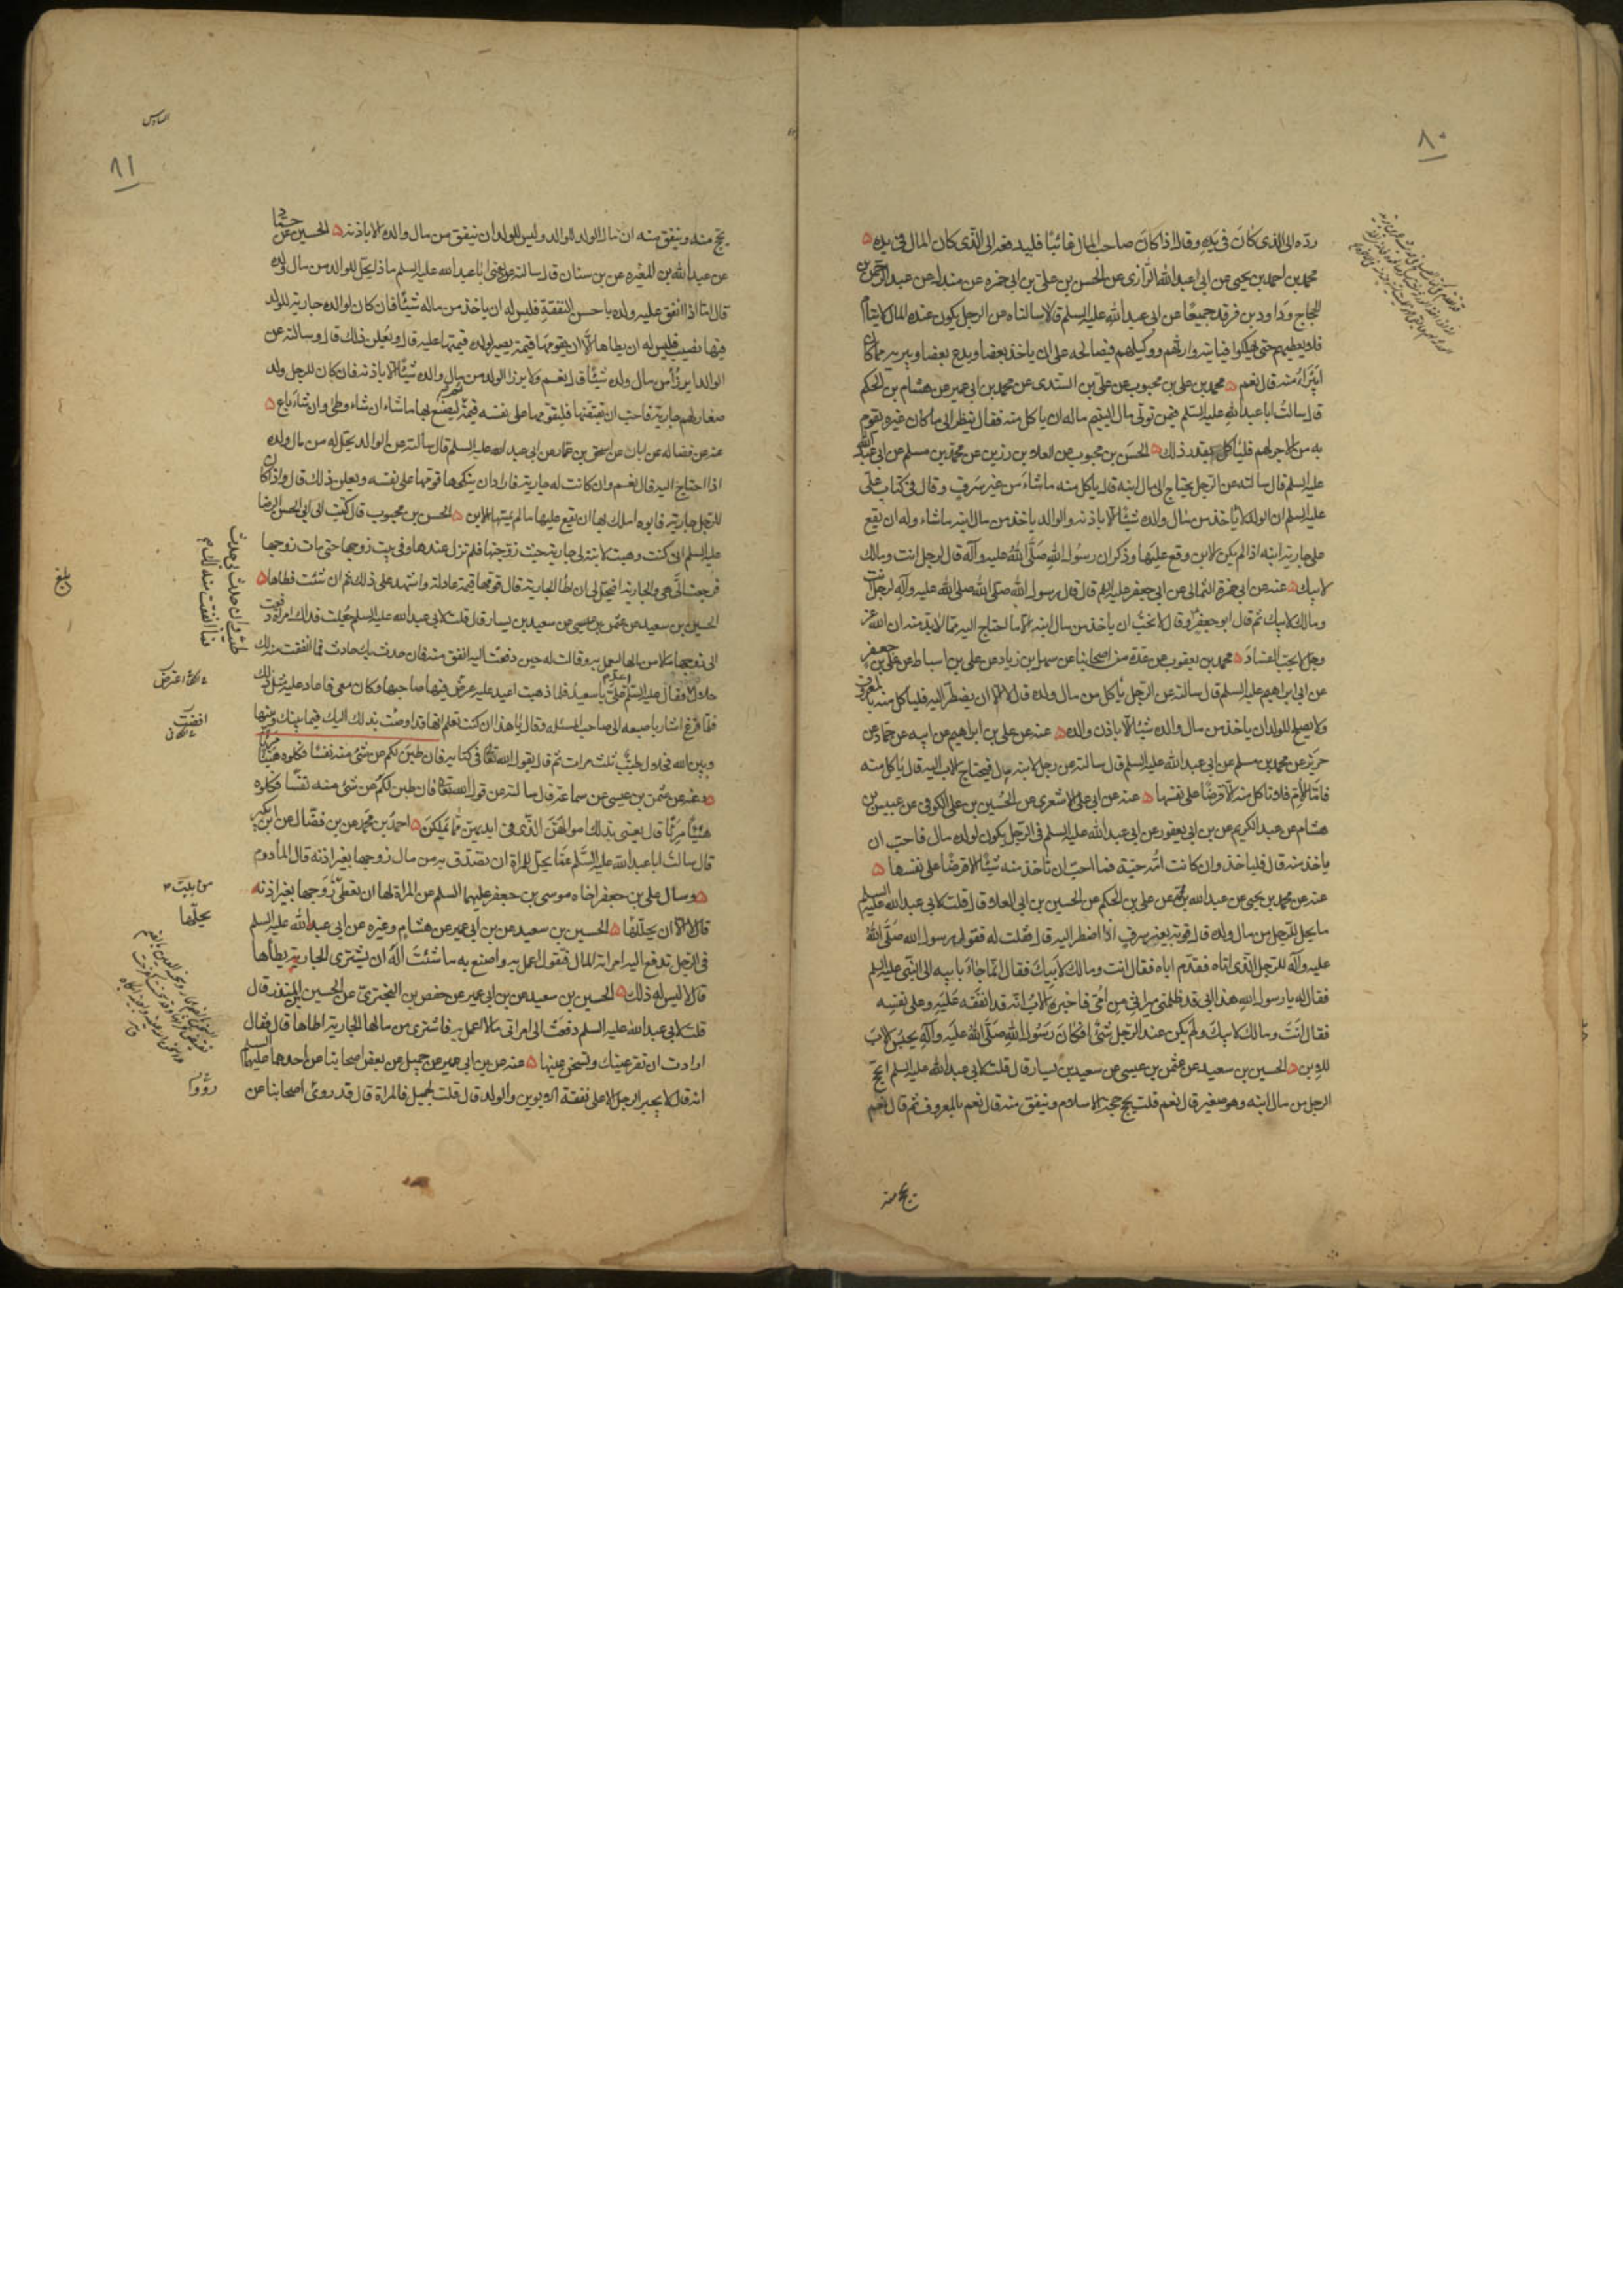 ٨٠
ردّه الى الذى كان فى يده وقال اذا كان صاحب المال غائبًا فليدفعه الى الذى كان المال فى يده
محمد بن احمد بن يحيى عن ابى عبد الله الرازى عن الحسن بن على بن ابى حمزه عن مندل عن عبد الرحمن بن
الحجاج وداود بن فرقد جميعًا عن ابى عبد الله عليه السلم قالا سالناه عن الرجل يكون عنده المال لايتام
فلا يعطيهم حتى يهلكوا فياتيه وارثهم ووكيلهم فيصالحه على ان ياخذ بعضا ويدع بعضا ويبريه مما كان
ايبرأ منه قال نعم محمد بن على بن محبوب عن على بن السندى عن محمد بن ابى عمير عن هشام بن الحكم
قال سالت ابا عبد الله عليه السلم فيمن تولى مال اليتيم ماله ان ياكل منه فقال ينظر الى ما كان غيره يقوم
به من الاجر لهم فلياكل بقدر ذلك الحسن بن محبوب عن العلا بن رزين عن محمد بن مسلم عن ابى عبد الله
عليه السلم قال سالته عن الرجل يحتاج الى مال ابنه قال ياكل منه ما شاء من غير سرف وقال فى كتاب على
عليه السلم ان الولد لا ياخذ من مال والده شيئًا الا باذنه والوالد ياخذ من مال ابنه ما شاء وله ان يقع
على جارية ابنه اذا لم يكن الابن وقع عليها وذكر ان رسول الله صلى الله عليه وآله قال لرجل انت ومالك
لابيك عنه عن ابى حمزة الثمالى عن ابى جعفر عليه السلم قال قال رسول الله صلى الله عليه وآله لرجل انت
ومالك لابيك ثم قال ابو جعفر وقال لا نحب ان ياخذ من مال ابنه الا ما احتاج اليه مما لا بد منه ان الله عز
وجل لا يحب الفساد محمد بن يعقوب عن عدة من اصحابنا عن سهل بن زياد عن على بن اسباط عن على بن جعفر
عن ابى ابراهيم عليه السلم قال سالته عن الرجل ياكل من مال ولده قال لا الا ان يضطر اليه فلياكل منه بالمعروف
ولا يصلح للولد ان ياخذ من مال والده شيئا الا باذن والده عنه عن على بن ابراهيم عن ابيه عن حماد عن
حريز عن محمد بن مسلم عن ابى عبد الله عليه السلم قال سالته عن رجل لابنه مال فيحتاج الاب اليه قال ياكل منه
فاما الام فلا تاكل منه الا قرضًا على نفسها عنه عن ابى على الاشعرى عن الحسين بن على الكوفى عن عبيس بن
هشام عن عبد الكريم عن بن ابى يعفور عن ابى عبد الله عليه السلم فى الرجل يكون لولده مال فاحب ان
ياخذ منه قال فلياخذ وان كانت امه حيّة فما احب ان تاخذ منه شيئا الا قرضا على نفسها
عنه عن محمد بن يحيى عن عبد الله بن محمد عن على بن الحكم عن الحسين بن ابى العلا قال قلت لابى عبد الله عليه السلم
ما يحل للرجل من مال ولده قال قوته بغير سرف اذا اضطر اليه قال فقلت له فقول رسول الله صلى الله
عليه وآله للرجل الذى اتاه فقدم اباه فقال انت ومالك لابيك فقال انما جاء بابيه الى النبى عليه السلم
فقال له يا رسول الله هذا ابى قد ظلمنى ميراثى من امى فاخبره الاب انه قد انفقه عليه وعلى نفسه
فقال انت ومالك لابيك ولم يكن عند الرجل شئ افكان رسول الله صلى الله عليه وآله يحبس الاب
للابن الحسين بن سعيد عن عثمن بن عيسى عن سعيد بن يسار قال قلت لابى عبد الله عليه السلم ايحج
الرجل من مال ابنه وهو صغير قال نعم قلت يحج حجة الاسلام وينفق منه قال نعم بالمعروف ثم قال نعم
يحج منه
السادس
٨١
يحج منه وينفق منه ان مال الولد للوالد وليس للولد ان ينفق من مال والده الا باذنه الحسين عن حماد
عن عبد الله بن المغيره عن بن سنان قال سالته يعنى ابا عبد الله عليه السلم ماذا يحل للوالد من مال ولده
قال اما اذا انفق عليه ولده باحسن النفقة فليس له ان ياخذ من ماله شيئًا فان كان لوالده جارية للولد
فيها نصيب فليس له ان يطاها الا ان يقومها قيمة يصير لولده قيمتها عليه قال ويعلن ذلك قال وسالته عن
الوالد ايرزأ من مال ولده شيئًا قال نعم ولا يرزا الولد من مال والده شيئًا الا باذنه فان كان للرجل ولد
صغار لهم جارية فاحب ان يقتضها فليقومها على نفسه قيمة ثم ليصنع بها ما شاء ان شاء وطئ وان شاء باع
عنه عن فضاله عن ابان عن اسحق بن عمار عن ابى عبد الله عليه السلم قال سالته عن الوالد يحل له من مال ولده
اذا احتاج اليه قال نعم وان كانت له جارية فاراد ان ينكحها قومها على نفسه ويعلن ذلك قال واذا كان
للرجل جارية فابوه املك بها ان يقع عليها ما لم يمسها الابن الحسن بن محبوب قال كتبت الى ابى الحسن الرضا
عليه السلم انى كنت وهبت لابنة لى جارية حيث زوجتها فلم تزل عندها وفى بيت زوجها حتى مات زوجها
فرجعت الى هى والجارية افيحل لى ان اطا الجارية قال قومها قيمة عادلة واشهد على ذلك ثم ان شئت فطاها
الحسين بن سعيد عن عثمن بن عيسى عن سعيد بن يسار قال قلت لابى عبد الله عليه السلم جعلت فداك امراة دفعت
الى زوجها مالا من مالها ليعمل به وقالت له حين دفعت اليه انفق منه فان حدث بك حادث فما انفقت منه لك
حلال فقال عليه السلم اعد على يا سعيد فلما ذهبت اعيد عليه عرض فيها صاحبها وكان معى فاعاد عليه مثل ذلك
فلما فرغ اشار باصبعه الى صاحب المسئله وقال يا هذا ان كنت تعلم انها قد اوصت بذلك اليك فيما بينك وبينها
وبين الله فحلال طيب ثلث مرات ثم قال يقول الله تعالى فى كتابه فان طبن لكم عن شئ منه نفسًا فكلوه هنيئا مريئا
وعنه عن عثمن بن عيسى عن سماعة قال سالته عن قول الله تعالى فان طبن لكم عن شئ منه نفسًا فكلوه
هنيئًا مريئًا قال يعنى بذلك اموالهن الذى فى ايديهن مما يملكن احمد بن محمد عن بن فضال عن ابن بكير
قال سالت ابا عبد الله عليه السلم عما يحل للمراة ان تصدق به من مال زوجها بغير اذنه قال المأدوم
وسال على بن جعفر اخاه موسى بن جعفر عليهما السلم عن المراة لها ان تعطى من بيت زوجها بغير اذنه
قال لا الا ان يحللها الحسين بن سعيد عن بن ابى عمير عن هشام وغيره عن ابى عبد الله عليه السلم
فى الرجل تدفع اليه امراته المال فتقول اعمل به واصنع به ما شئت اله ان يشترى الجارية يطأها
قال لا ليس له ذلك الحسين بن سعيد عن بن ابى عمير عن حفص بن البخترى عن الحسين بن المنذر قال
قلت لابى عبد الله عليه السلم دفعت الى امراتى مالا اعمل به فاشترى من مالها الجارية اطاها قال فقال
ارادت ان تقر عينك وتسخن عينها عنه عن بن ابى عمير عن جميل عن بعض اصحابنا عن احدهما عليهما السلم
انه قال لا يجبر الرجل الا على نفقة الابوين والولد قال قلت لجميل فالمراة قال قد روى اصحابنا عن
بلغ
افضت
يحللها
رووا